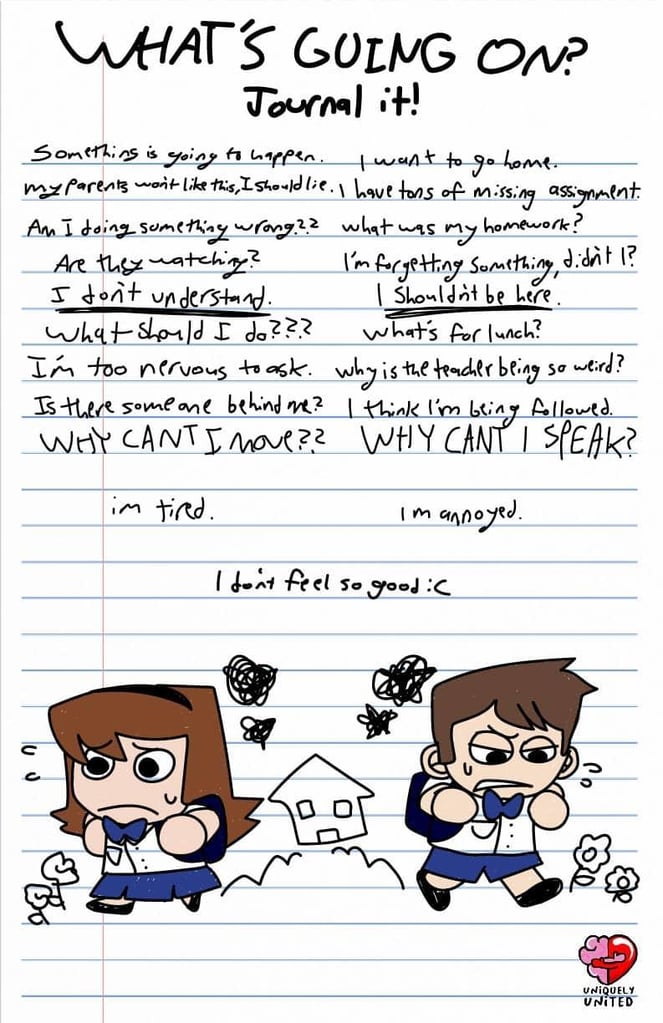 WHAT'S GOING ON?
Journal it!
Something is going to happen.
my parents won't like this, I should lie.
Am I doing something wrong???
Are they watching?
I don't understand.
What should I do???
I'm too nervous to ask.
Is there someone behind me?
WHY CANT I move???
im tired.
I want to go home.
I have tons of missing assignment.
what was my homework?
I'm forgetting something, didn't I?
I Shouldn't be here.
what's for lunch?
why is the teacher being so weird?
I think I'm being followed.
WHY CANT I SPEAK?
I'm annoyed.
I don't feel so good :C
UNIQUELY
UNITED